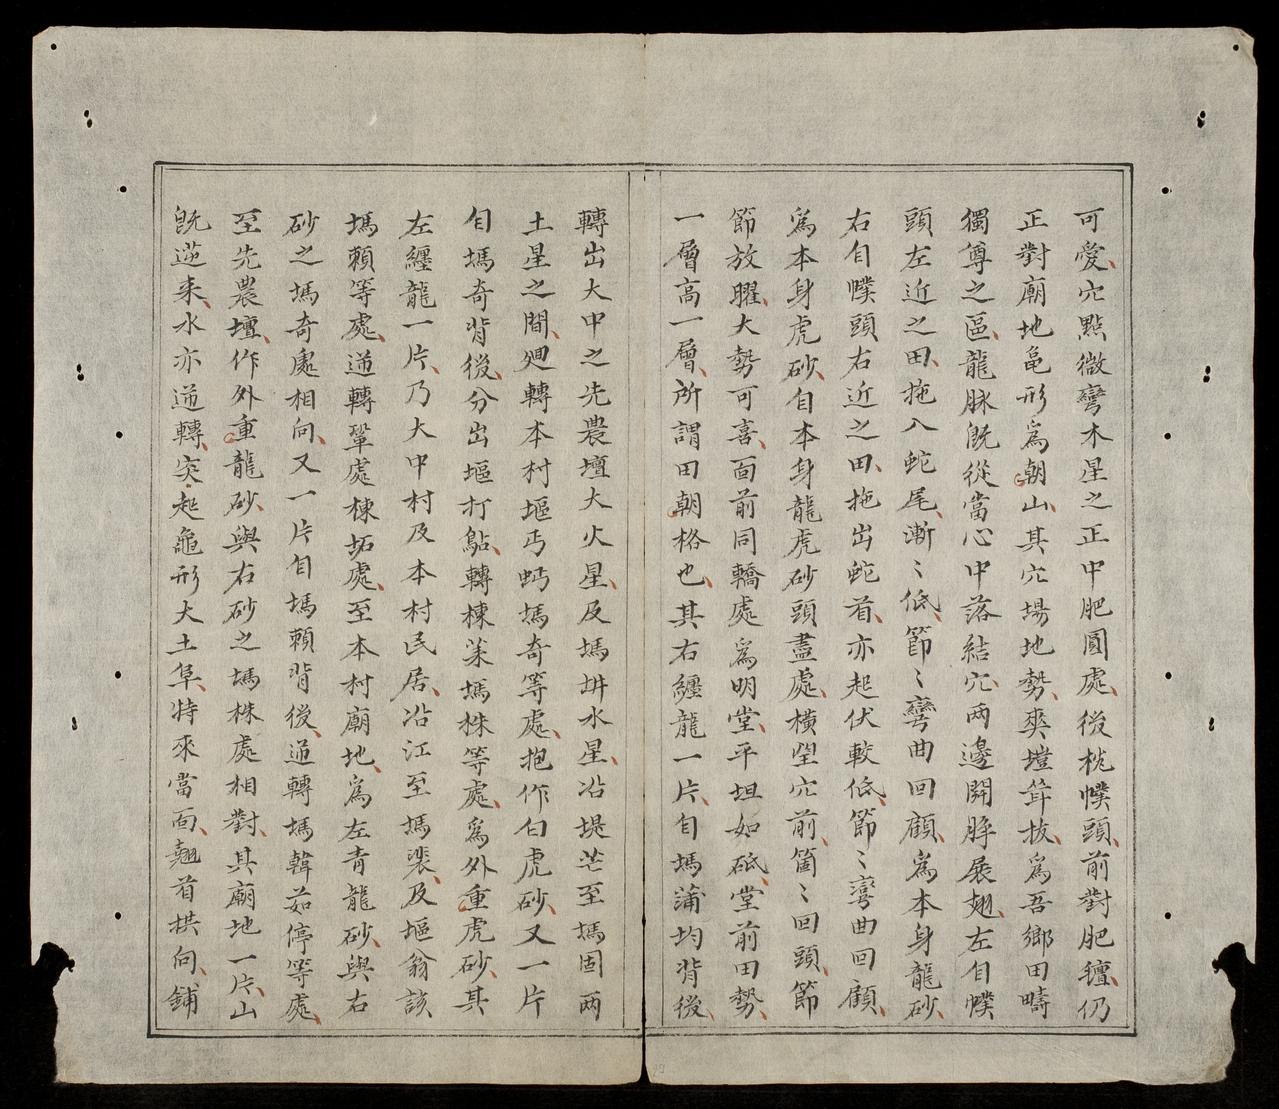 可愛穴點微彎木星之正中肥圓處後枕幞頭前對肥䵻仍
正對廟地黽形爲朝山其穴場地勢爽塏聳拔爲吾鄉田疇
獨尊之區龍脉旣從當心中落結穴兩邊開脝展翅左自幞
頭左近之田拖入蛇尾漸〻低節〻彎曲回顧爲本身龍砂
右自幞頭右近之田拖出蛇首亦起伏較低節〻彎曲回顧
爲本身虎砂自本身龍虎砂頭盡處橫望穴前箇〻回頭節
節放曜大勢可喜面前同轎處爲明堂平坦如砥堂前田勢
一層高一層所謂田朝格也其右纏龍一片自塢蒲均背後
轉出大中之先農壇大火星及塢垪水星沿堤芒至塢固兩
土星之間廻轉本村塸丐蚂塢奇等處抱作白虎砂又一片
自塢奇背後分出塸打點轉棟䒳塢株等處爲外重虎砂其
左纏龍一片乃大中村及本村民居沿江至塢裴及塸翁該
塢賴等處逆轉鞏處棟坧處至本村廟地爲左青龍砂與右
砂之塢奇處相向又一片自塢賴背後逆轉塢韓茹停等處
至先農壇作外重龍砂與右砂之塢株處相對其廟地一片山
旣逆來水亦逆轉突起龜形大土阜特來當面翹首拱向鋪